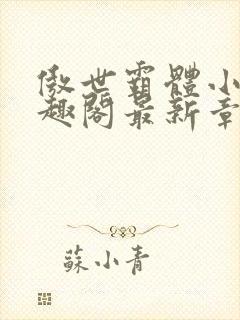 傲世霸體小
趣閣最新章
蘇小青